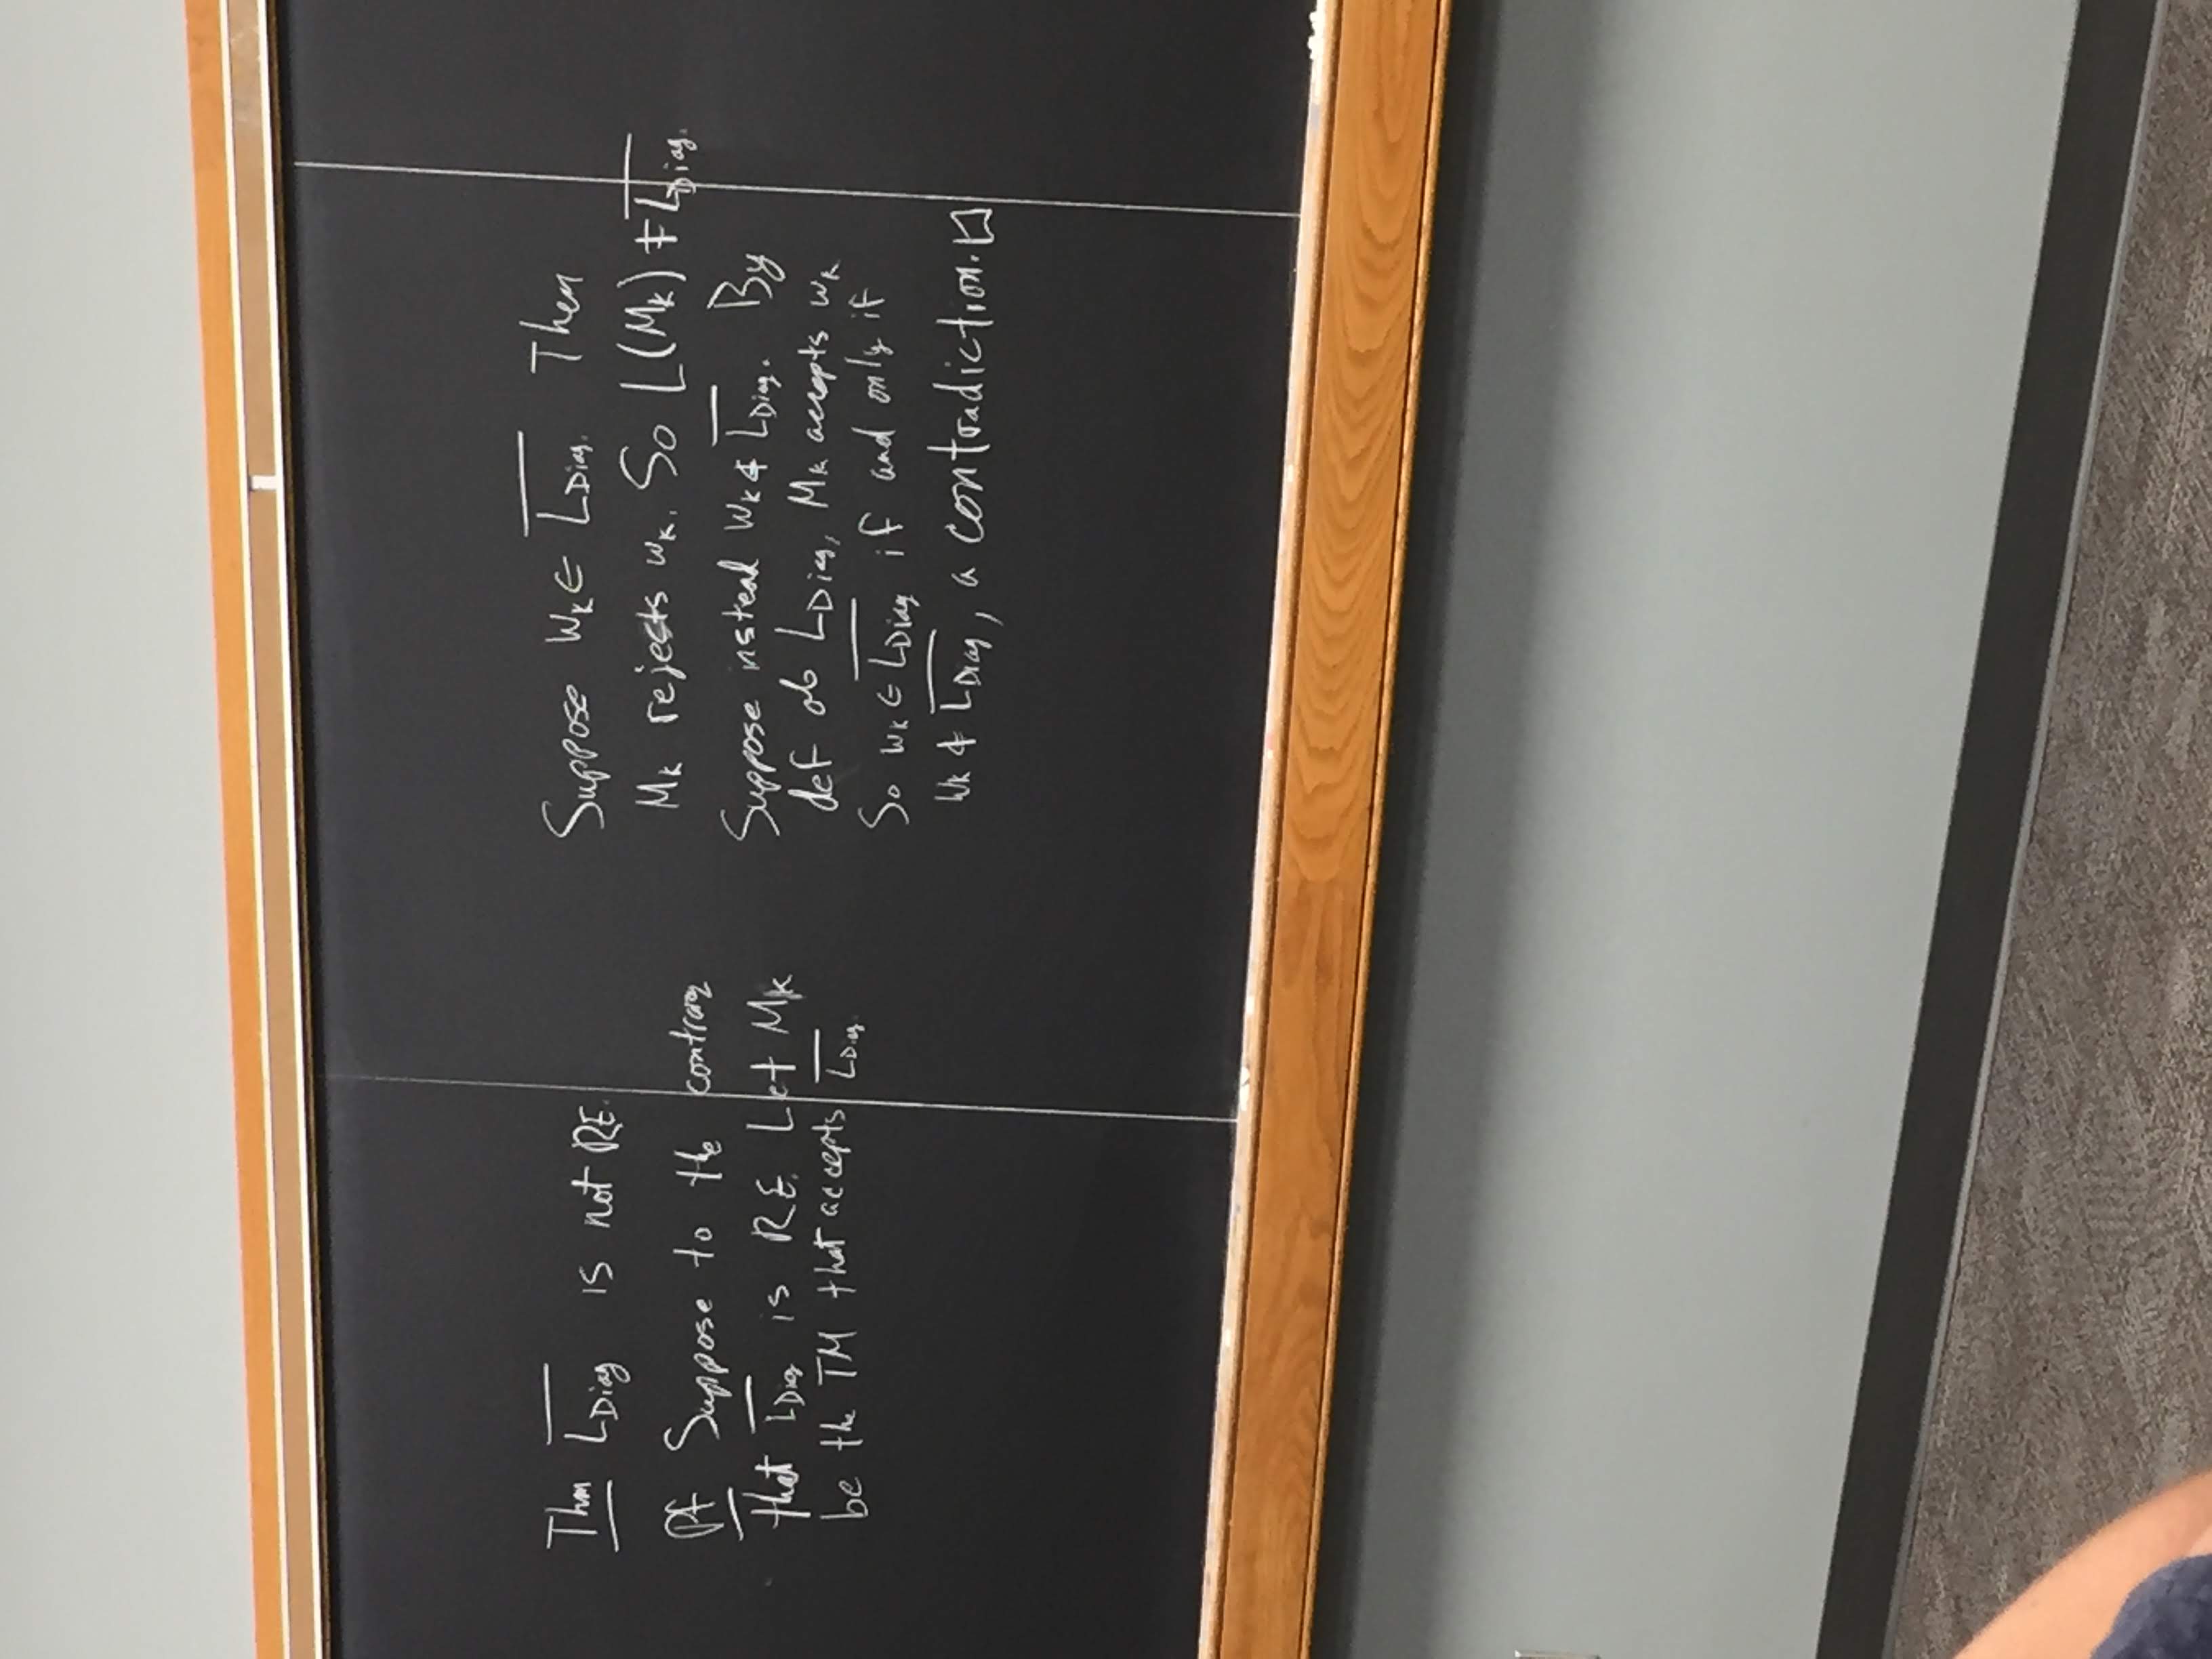 Thm L̅_Diag is not RE.
Pf Suppose to the contrary
that L̅_Diag is RE. Let M_k
be the TM that accepts L̅_Diag
Suppose w_k ∈ L̅_Diag. Then
M_k rejects w_k. So L(M_k) ≠ L̅_Diag.
Suppose instead w_k ∉ L̅_Diag. By
def of L_Diag, M_k accepts w_k
So w_k ∈ L̅_Diag if and only if
w_k ∉ L̅_Diag, a contradiction. □